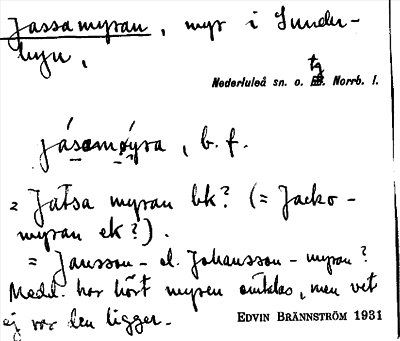 Jassamyran, myr i Sunder-
byn,
Nederluleå sn. o. tg. Norrb. l.
jásamøyra, b. f.
2 Jatsa myran bk? (= Jacko-
myran ek?).
= Jansson- el. Johansson-myran?
Medd. har hört myren omtalas, men vet
ej var den ligger.
EDVIN BRÄNNSTRÖM 1931